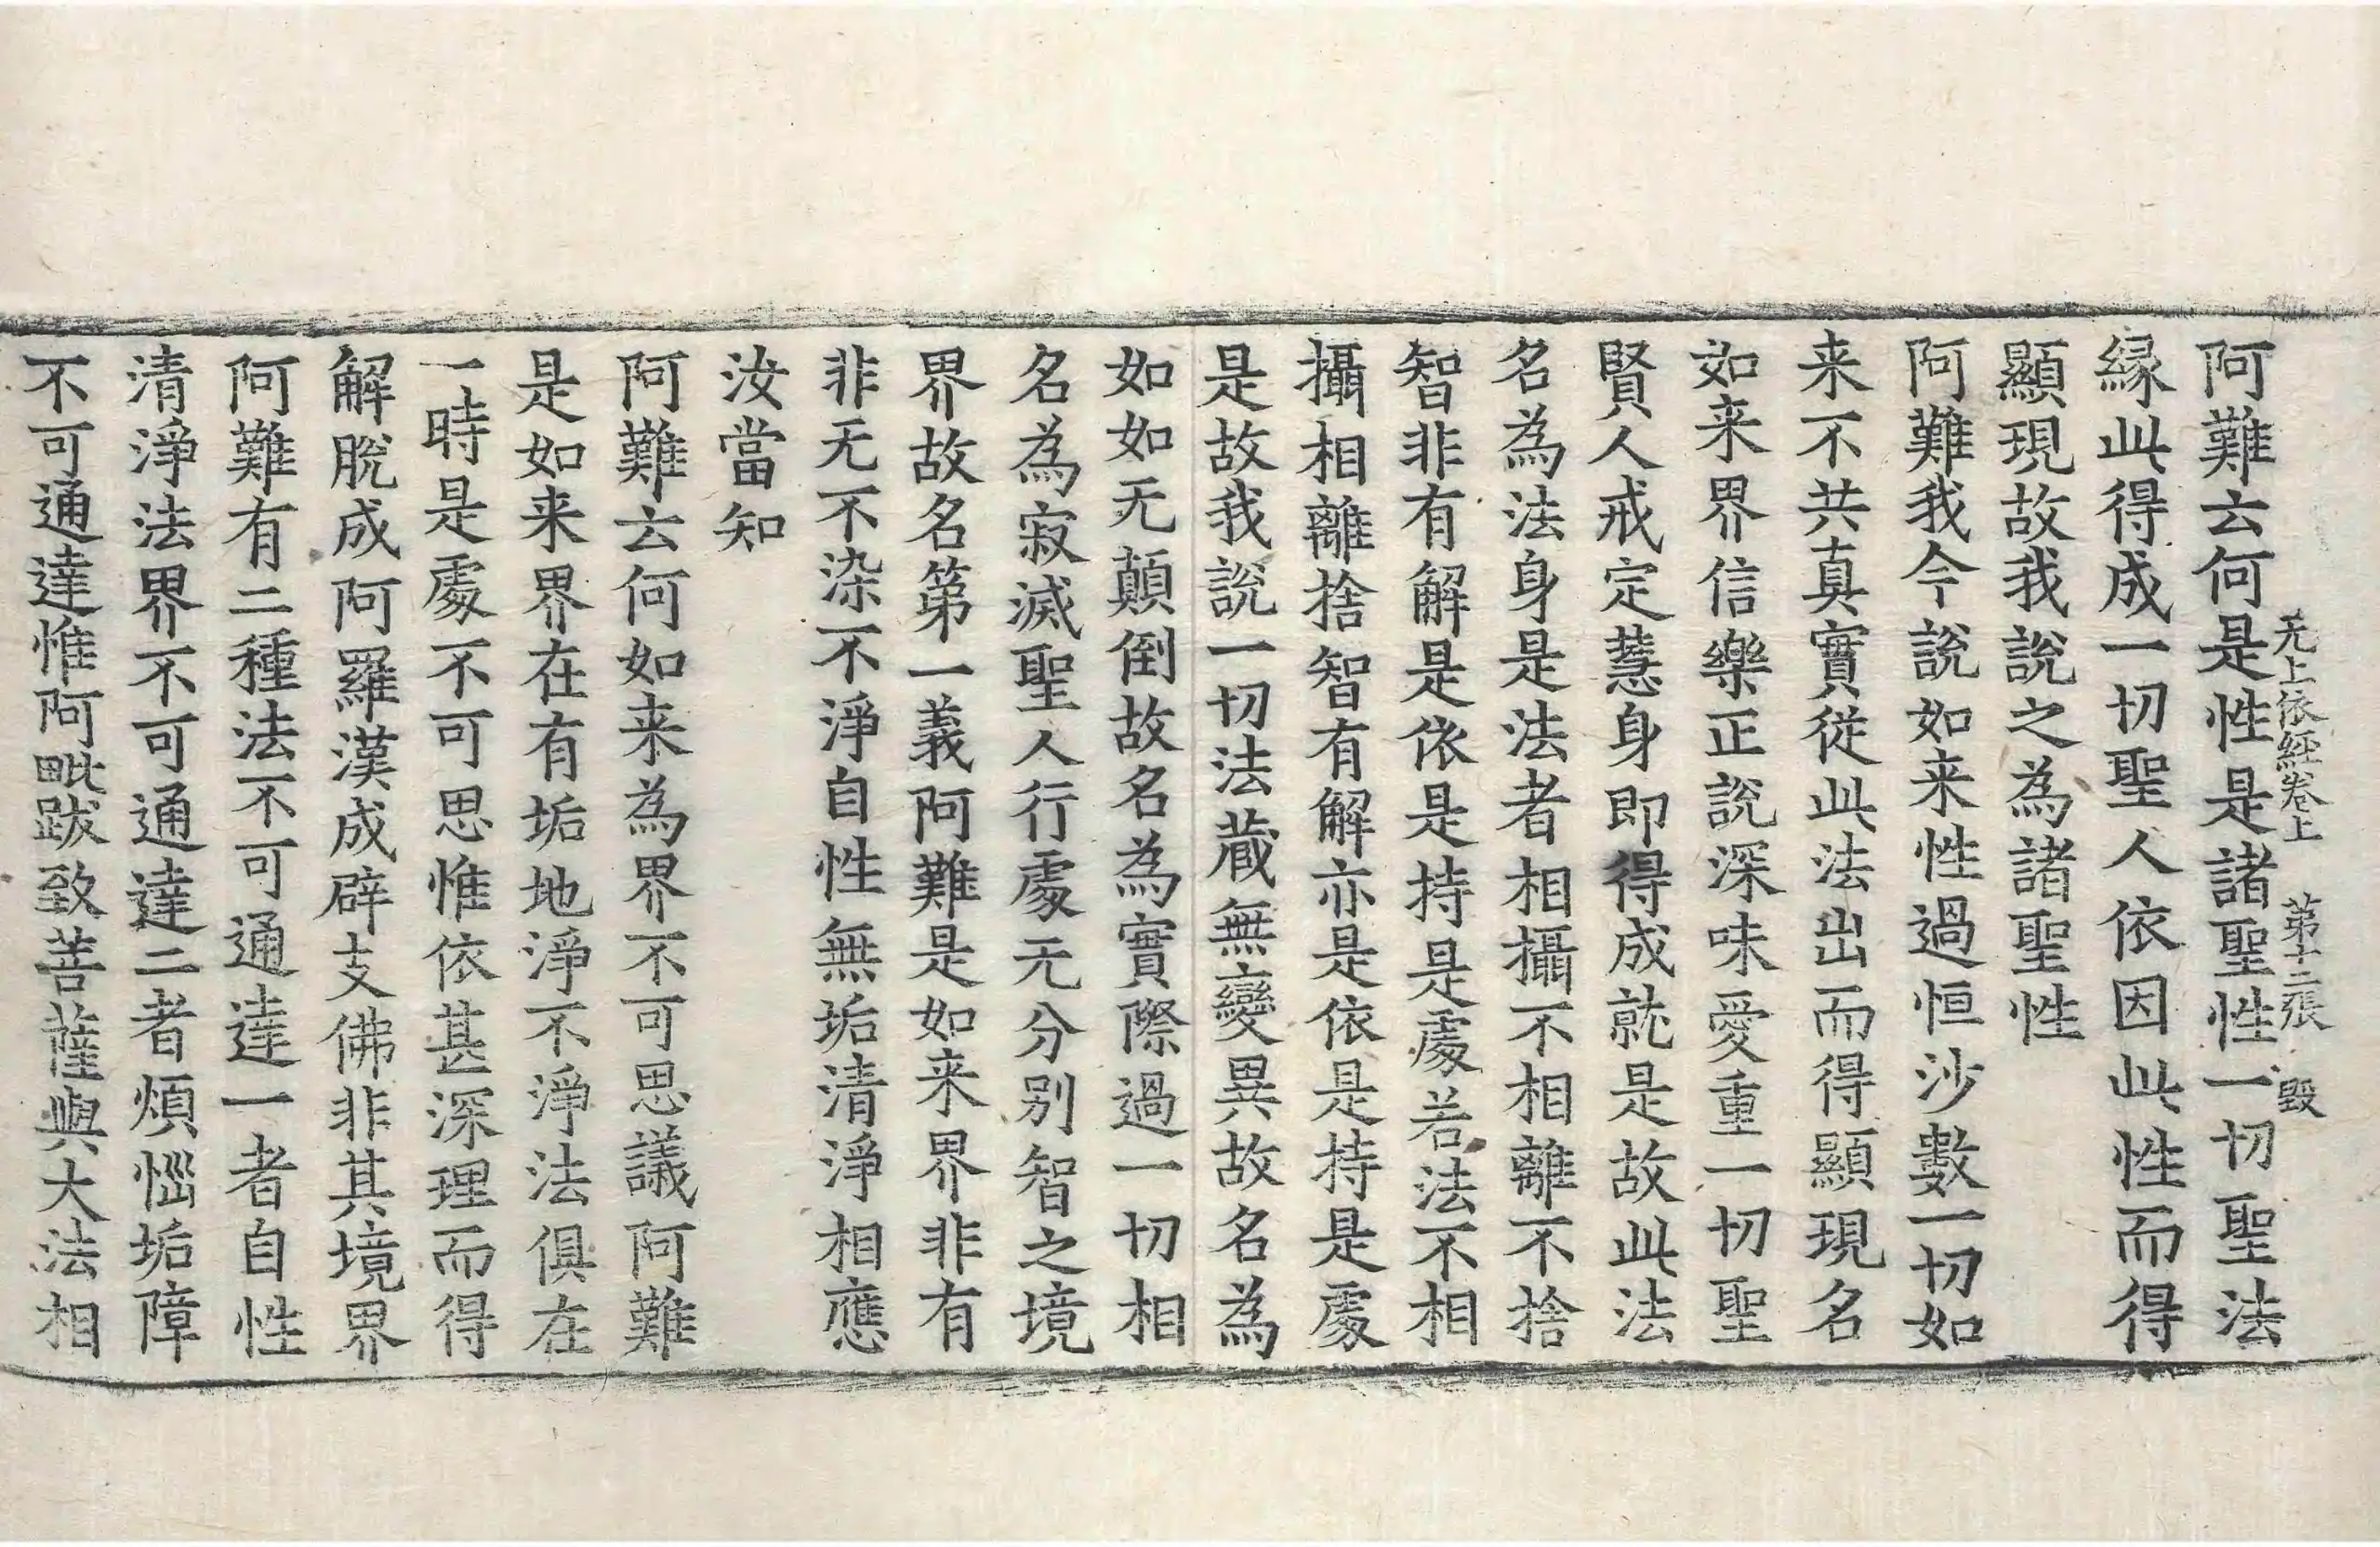 无上依經卷上　第十二張　毀
阿難云何是性是諸聖性一切聖法
縁此得成一切聖人依因此性而得
顯現故我說之為諸聖性
阿難我今說如来性過恒沙數一切如
来不共真實從此法出而得顯現名
如来界信樂正說深味愛重一切聖
賢人戒定慧身即得成就是故此法
名為法身是法者相攝不相離不捨
智非有解是依是持是處若法不相
攝相離捨智有解亦是依是持是處
是故我說一切法蔵無變異故名為
如如无顛倒故名為實際過一切相
名為寂滅聖人行處无分别智之境
界故名第一義阿難是如来界非有
非无不染不淨自性無垢清淨相應
汝當知
阿難云何如来為界不可思議阿難
是如来界在有垢地淨不淨法俱在
一時是處不可思惟依甚深理而得
解脫成阿羅漢成辟支佛非其境界
阿難有二種法不可通達一者自性
清淨法界不可通達二者煩惱垢障
不可通達惟阿毗跋致菩薩與大法相